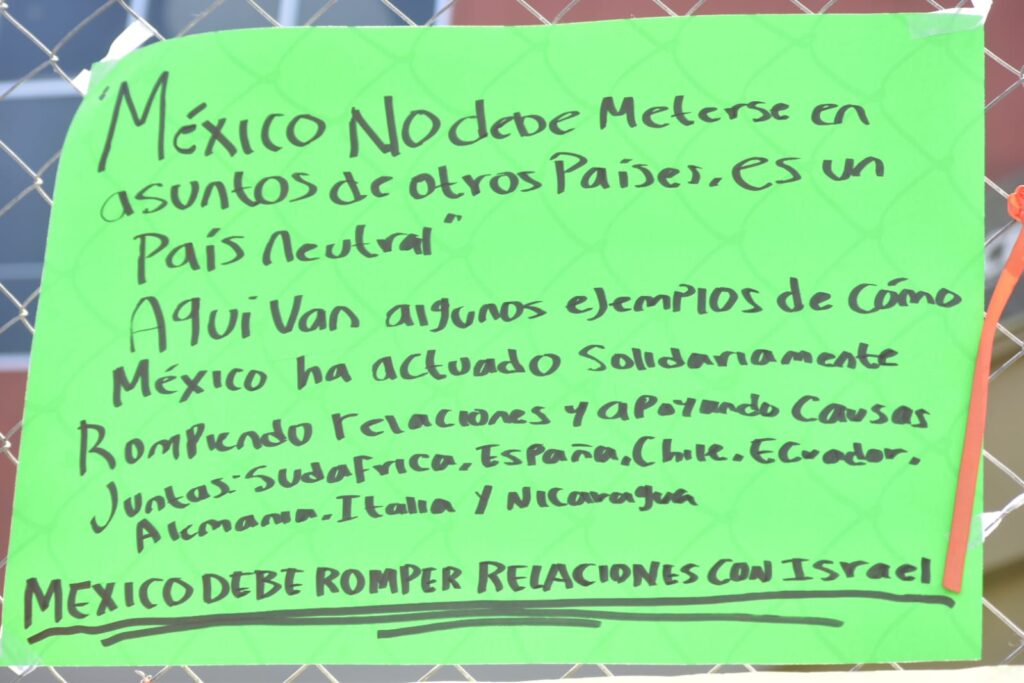 "México No debe Meterse en
asuntos de otros Países. es un
País neutral"
Aqui Van algunos ejemplos de cómo
México ha actuado Solidariamente
Rompiendo relaciones y apoyando Causas
Juntas: Sudafrica, España, Chile, Ecuador,
Alemania, Italia y Nicaragua
MEXICO DEBE ROMPER RELACIONES CON Israel